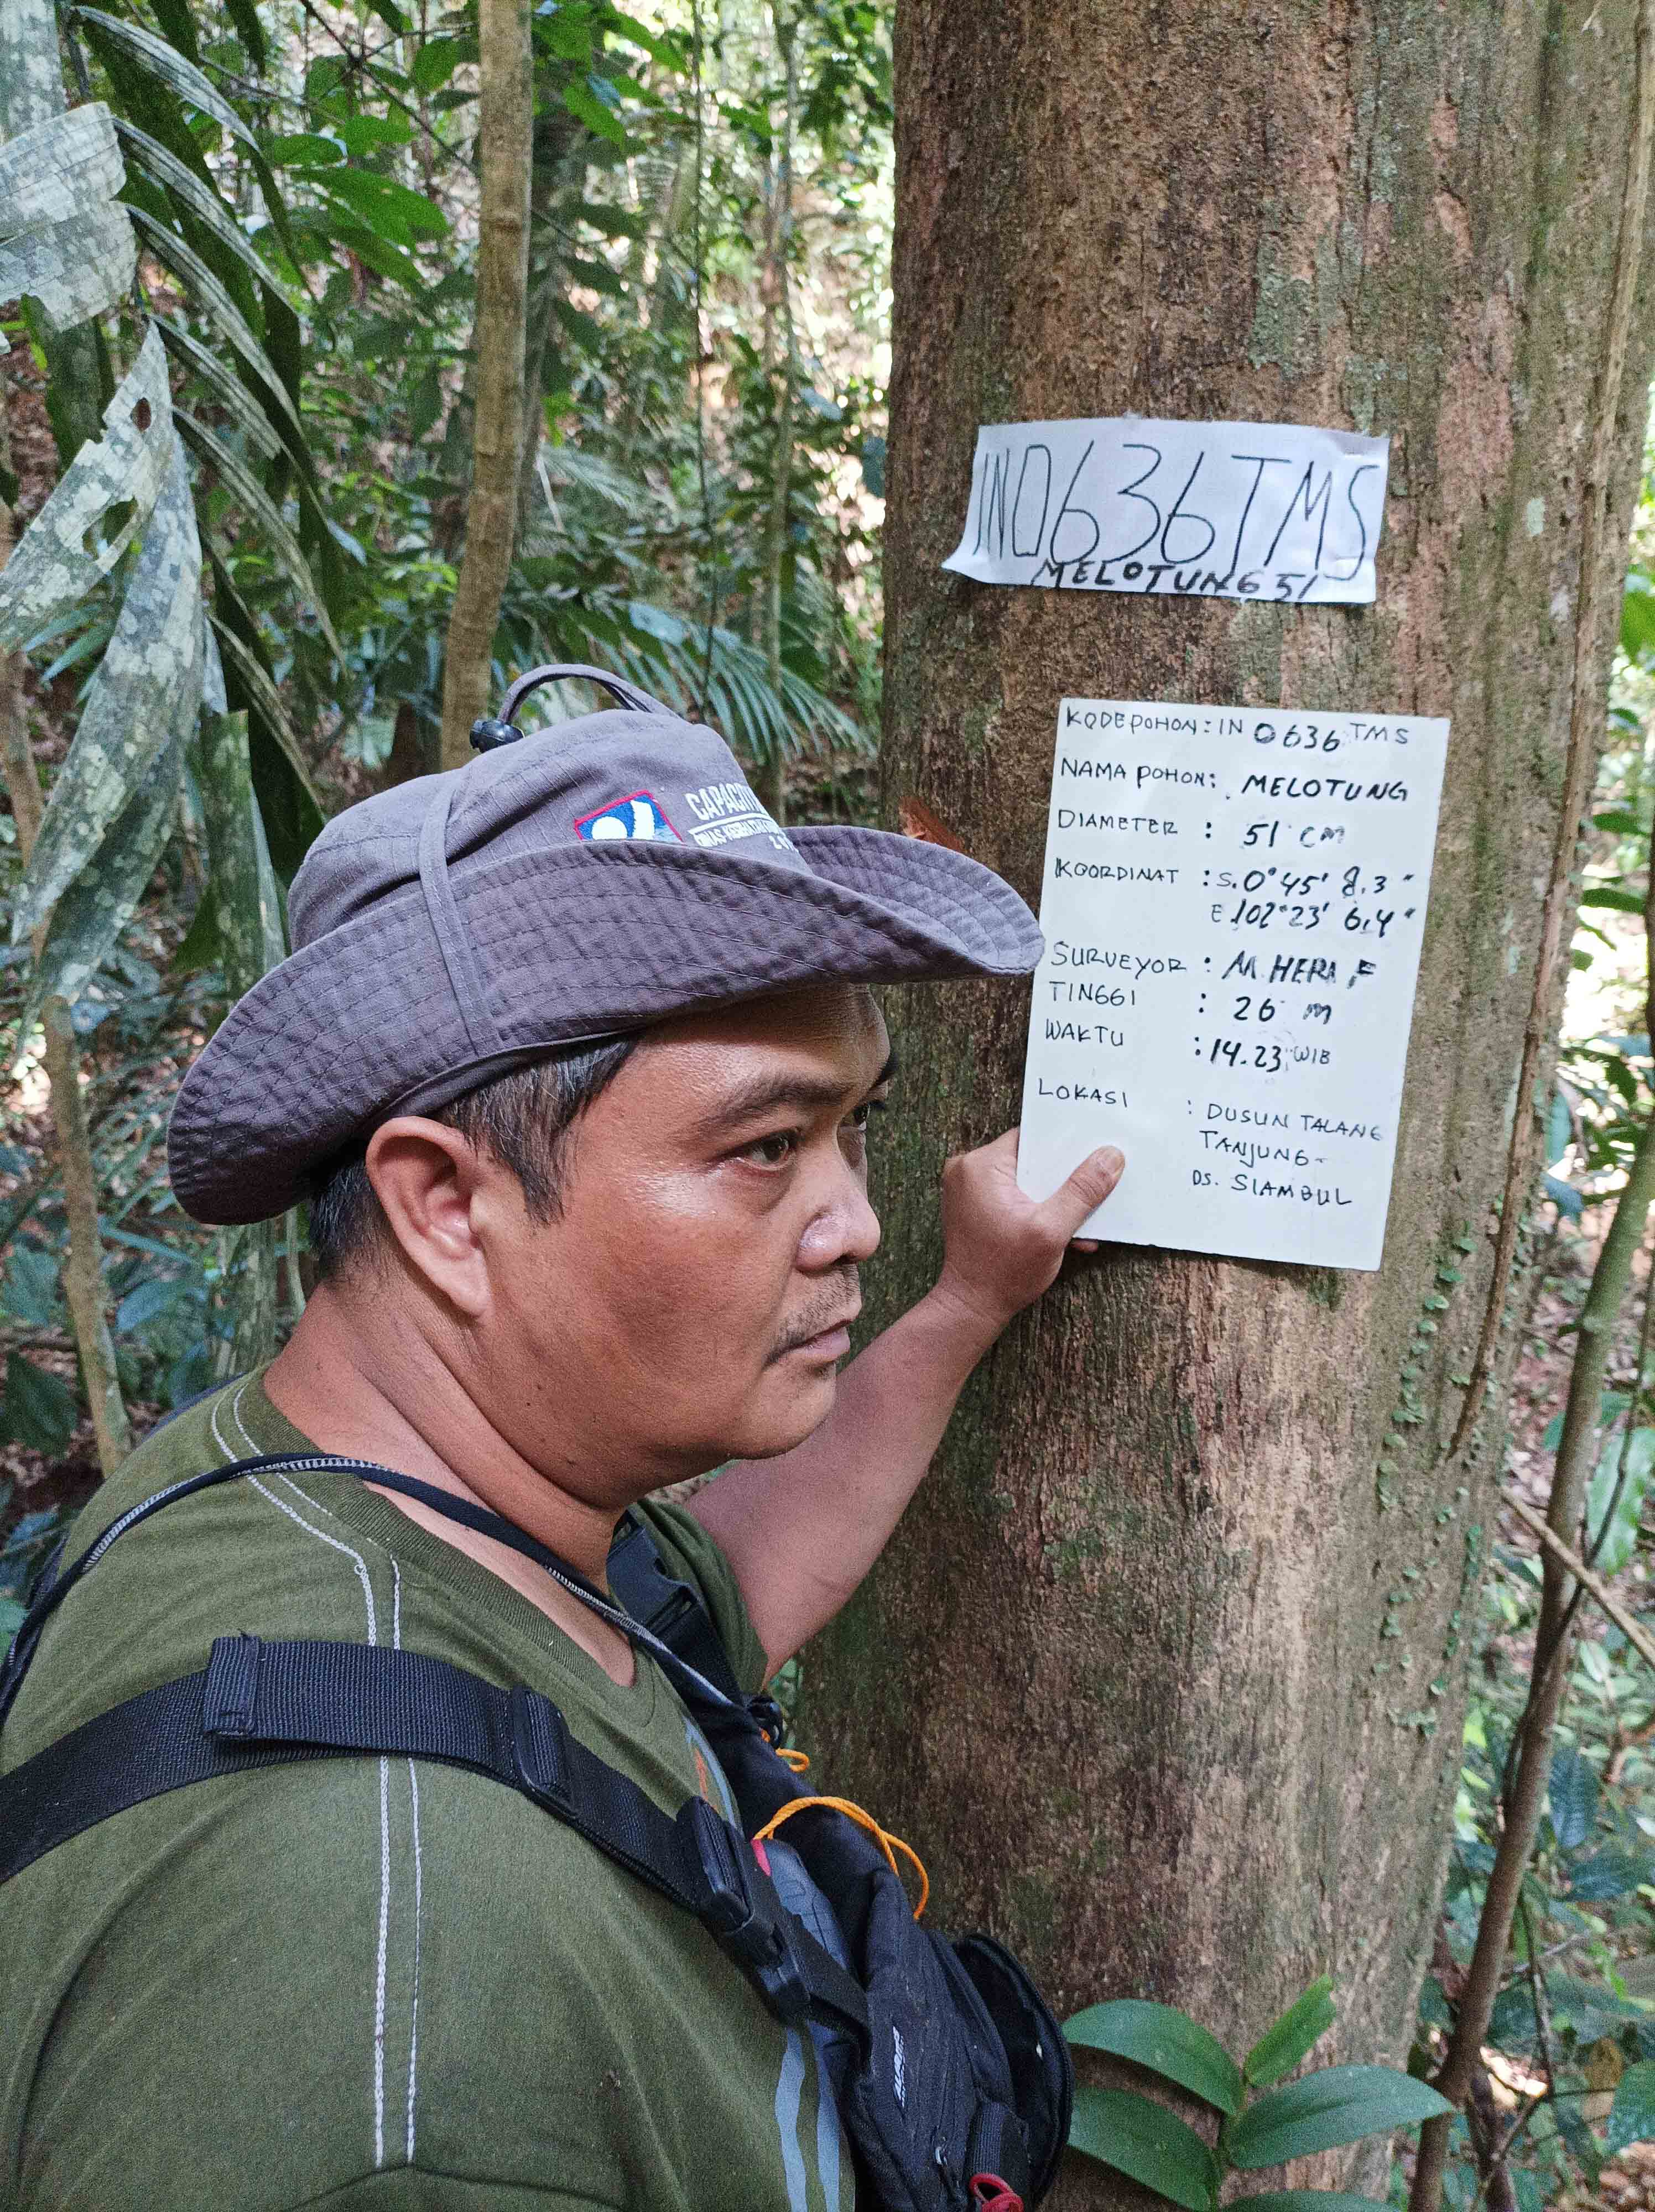 IN0636TMS
MELOTUNG 51
KODE POHON : IN 0636 TMS
NAMA POHON : MELOTUNG
DIAMETER : 51 CM
KOORDINAT : S. 0°45' 8.3"
E 102°23' 6,4"
SURVEYOR : M. HERI F
TINGGI : 26 m
WAKTU : 14.23 WIB
LOKASI : DUSUN TALANG
TANJUNG-
DS. SIAMBUL